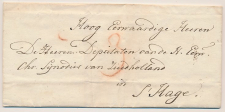 Hoog Eerwaardige Heeren
De Heeren Deputaten van de N. Eerw.
Chr. Synodus van Zuidholland
in
S Hage.